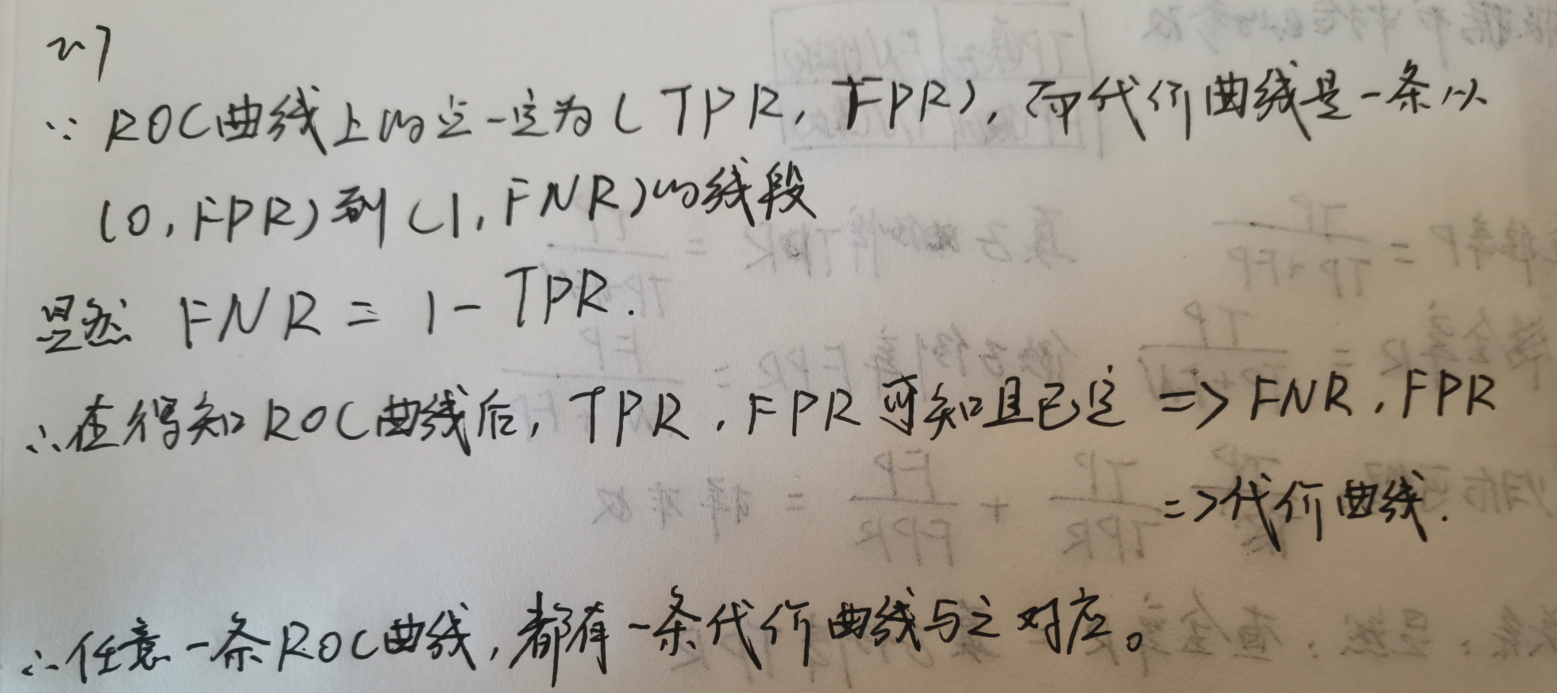 2.7
∵ ROC曲线上的点一定为(TPR, FPR), 而代价曲线是一条以
(0, FPR)到(1, FNR)的线段
显然 FNR = 1 - TPR.
∴在得知ROC曲线后, TPR, FPR可知且已定 => FNR, FPR
=>代价曲线.
∴任意一条ROC曲线, 都有一条代价曲线与之对应。